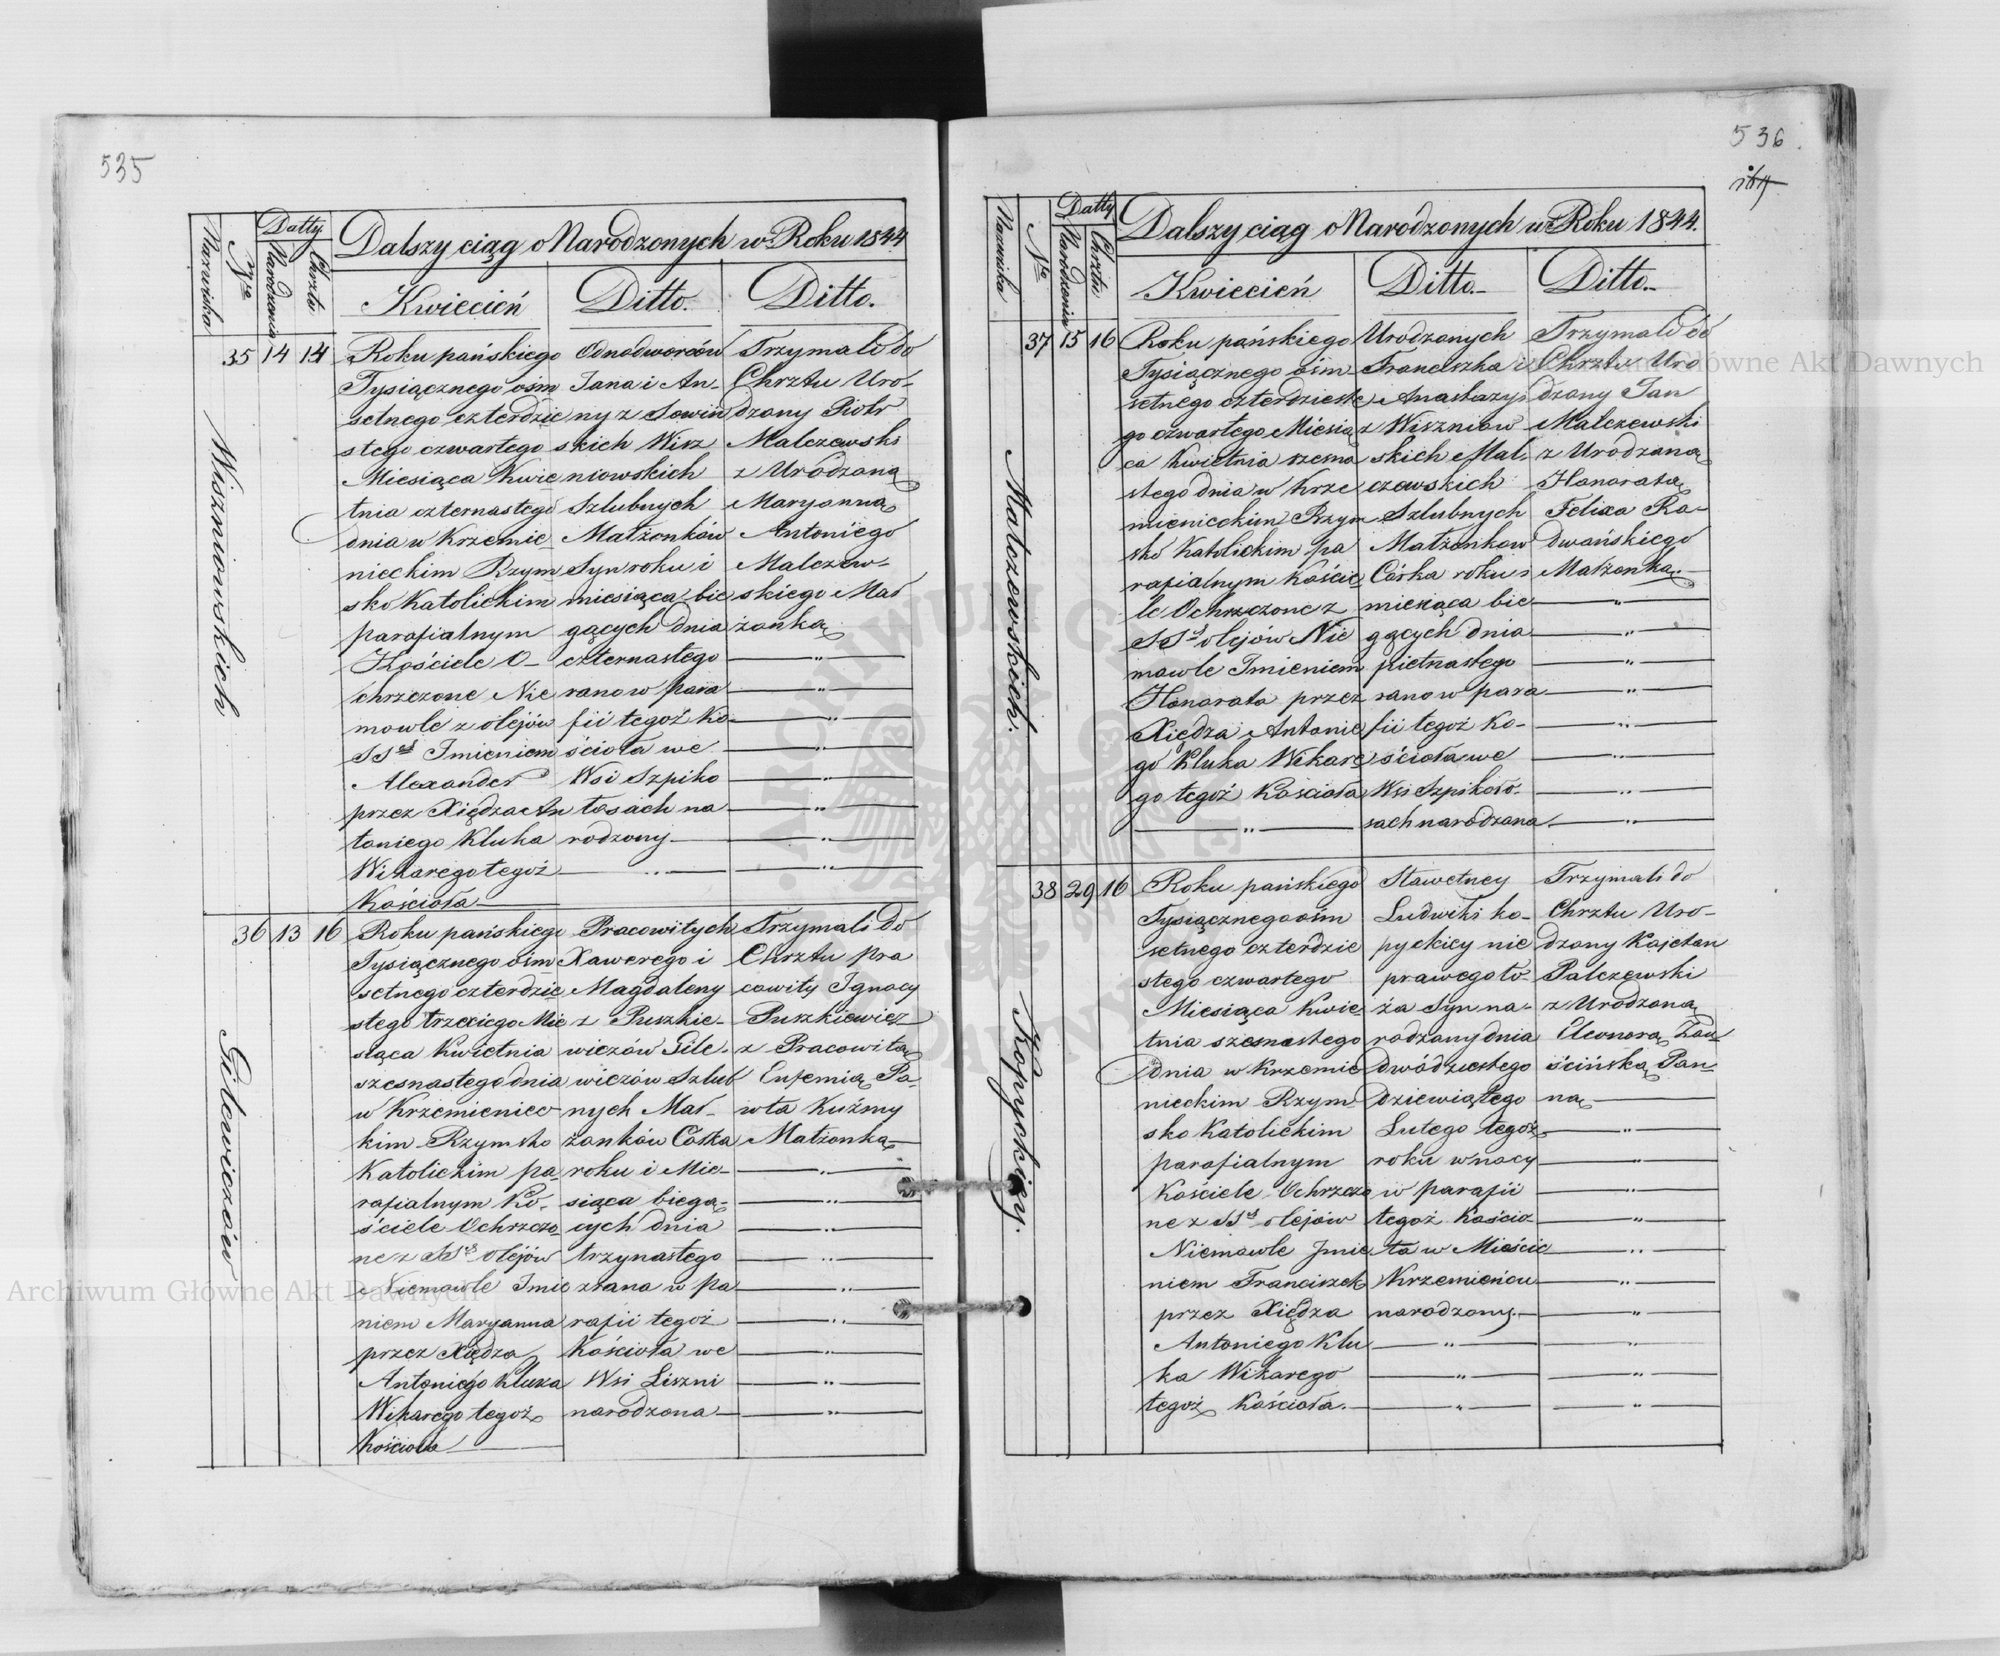 535
Dalszy ciąg o Narodzonych w Roku 1844
Nazwiska
Nro
Datty
Narodzenia
Chrztu
Kwiecień
Ditto.
Ditto.
Wiszniowskich
35 14 14
Roku pańskiego
Tysiącznego ośm
setnego czterdzie
stego czwartego
Miesiąca Kwie
tnia czternastego
dnia w Krzemie
nieckim Rzym
sko Katolickim
parafialnym
Kościele O-
chrzczone Nie
mowle z olejów
SS Imieniem
Alexander
przez Xiędza An
toniego Kluka
Wikarego tegoż
Kościoła
Odnodworców
Jana i An-
ny z Sowiń
skich Wisz
niowskich
Szlubnych
Małżonków
Syn roku i
miesiąca bie
gących dnia
czternastego
rano w para
fii tegoż Ko-
ścioła we
Wsi Szpiko
łosach na
rodzony
Trzymali do
Chrztu Uro-
dzony Piotr
Malczewski
z Urodzoną
Maryanną
Antoniego
Malczew-
skiego Mał
żonką
Gilewiczów
36 13 16
Roku pańskiego
Tysiącznego ośm
setnego czterdzie
stego trzeciego Mie
siąca Kwietnia
szesnastego dnia
w Krzemieniec
kim Rzymsko
Katolickim pa-
rafialnym Ko-
ściele Ochrzczo
ne z SS olejów
Niemowle Imie
niem Maryanna
przez Xiędza
Antoniego Kluka
Wikarego tegoż
Kościoła
Pracowitych
Xawerego i
Magdaleny
z Puszkie-
wiczów Gile-
wiczów Szlub
nych Mał-
żonków Córka
roku i Mie-
siąca biegą-
cych dnia
trzynastego
zrana w pa
rafii tegoż
Kościoła we
Wsi Liszni
narodzona
Trzymali do
Chrztu pra
cowity Ignacy
Puszkiewicz
z Pracowitą
Eufemią Pa-
wła Kuźmy
Małżonką
536.
Dalszy ciąg o Narodzonych w Roku 1844.
Nazwiska
Nro
Datty
Narodzenia
Chrztu
Kwiecień
Ditto.
Ditto.
Malczewskich.
37 15 16
Roku pańskiego
Tysiącznego ośm-
setnego czterdzieste
go czwartego Miesią
ca Kwietnia szesna
stego dnia w Krze
mienieckim Rzym
sko Katolickim pa
rafialnym Kościo
le Ochrzczone z
SS olejów Nie
mowle Imieniem
Honorata przez
Xiędza Antonie
go Kluka Wikare
go tegoż Kościoła
Urodzonych
Franciszka i
Anastazyi
z Wiszniow
skich Mal-
czewskich
Szlubnych
Małżonkow
Córka roku i
miesiąca bie
gących dnia
pietnastego
rano w para
fii tegoż Ko-
ścioła we
Wsi Szpikoło-
sach narodzona
Trzymali do
Chrztu Uro
dzony Jan
Malczewski
z Urodzoną
Honoratą
Felixa Ra-
dwańskiego
Małżonką.
Kopyckiey.
38 29 16
Roku pańskiego
Tysiącznego ośm
setnego czterdzie
stego czwartego
Miesiąca Kwie-
tnia szesnastego
dnia w Krzemie
nieckim Rzym-
sko Katolickim
parafialnym
Kościele Ochrzczo
ne z SS olejów
Niemowle Jmie
niem Franciszek
przez Xiędza
Antoniego Klu
ka Wikarego
tegoż Kościoła.
Sławetney
Ludwiki Ko-
pyckiey nie
prawego ło-
ża Syn na-
rodzony dnia
dwódziestego
dziewiątego
Lutego tegoż
roku w nocy
w parafii
tegoż Kościo-
ła w Mieście
Krzemieńcu
narodzony.
Trzymali do
Chrztu Uro-
dzony Kajetan
Palczewski
z Urodzoną
Eleonorą Zau-
ścińską Pan-
ną
Archiwum Główne Akt Dawnych
Archiwum Główne Akt Dawnych